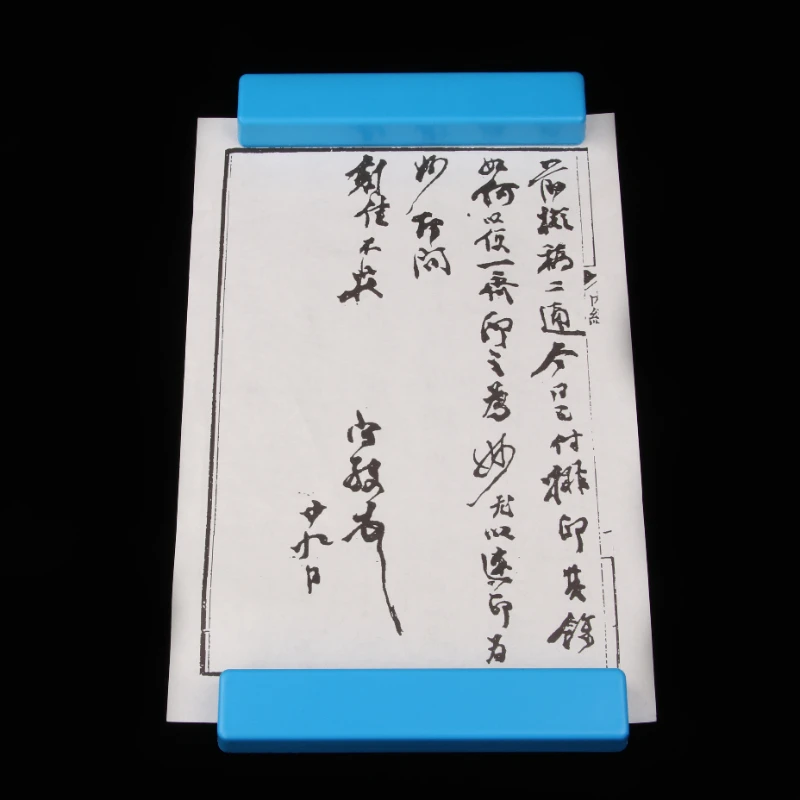 前擬稿二通今已付排印其餘
如何以便一齊印之為妙尤以速印为
妙 存問
創佳不具
弟
廿九日